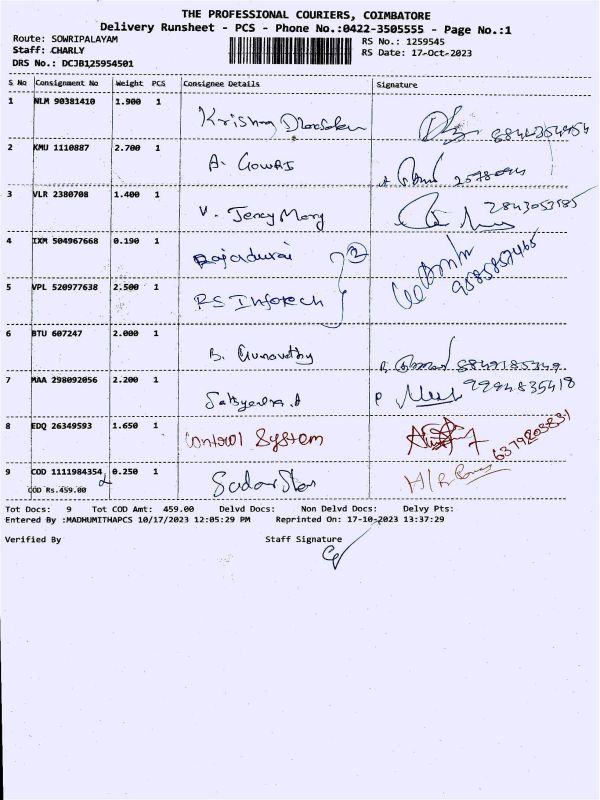 THE PROFESSIONAL COURIERS, COIMBATORE
Delivery Runsheet - PCS - Phone No.:0422-3505555 - Page No.:1
Route: SOWRIPALAYAM RS No.: 1259545
Staff: CHARLY RS Date: 17-Oct-2023
DRS No.: DCJB125954501
S No Consignment No Weight PCS Consignee Details Signature
1 NLM 90381410 1.900 1 Krishna
2 KMU 1110887 2.700 1 A. Gowri
3 VLR 2380708 1.400 1 V. Jency Mary
4 IXM 504967668 0.190 1 Rajadurai 2
5 VPL 520977638 2.500 1 RS Infotech
6 BTU 607247 2.000 1 B. Gunavathy
7 MAA 298092056 2.200 1 9294835418
8 EDQ 26349593 1.650 1 Control System 6379203831
9 COD 1111984354 0.250 1
COD Rs.459.00
Tot Docs: 9 Tot COD Amt: 459.00 Delvd Docs: Non Delvd Docs: Delvy Pts:
Entered By :MADHUMITHAPCS 10/17/2023 12:05:29 PM Reprinted On: 17-10-2023 13:37:29
Verified By Staff Signature